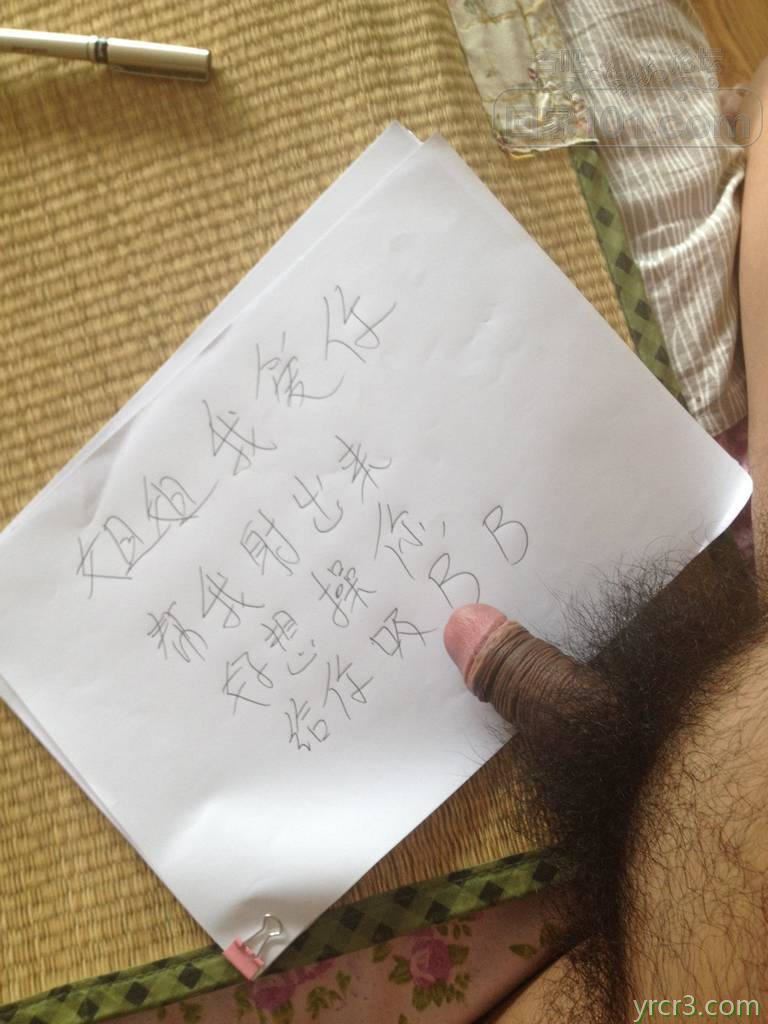 姐姐我爱你
帮我射出来
好想操你
给你吸BB
101.com
yrcr3.com